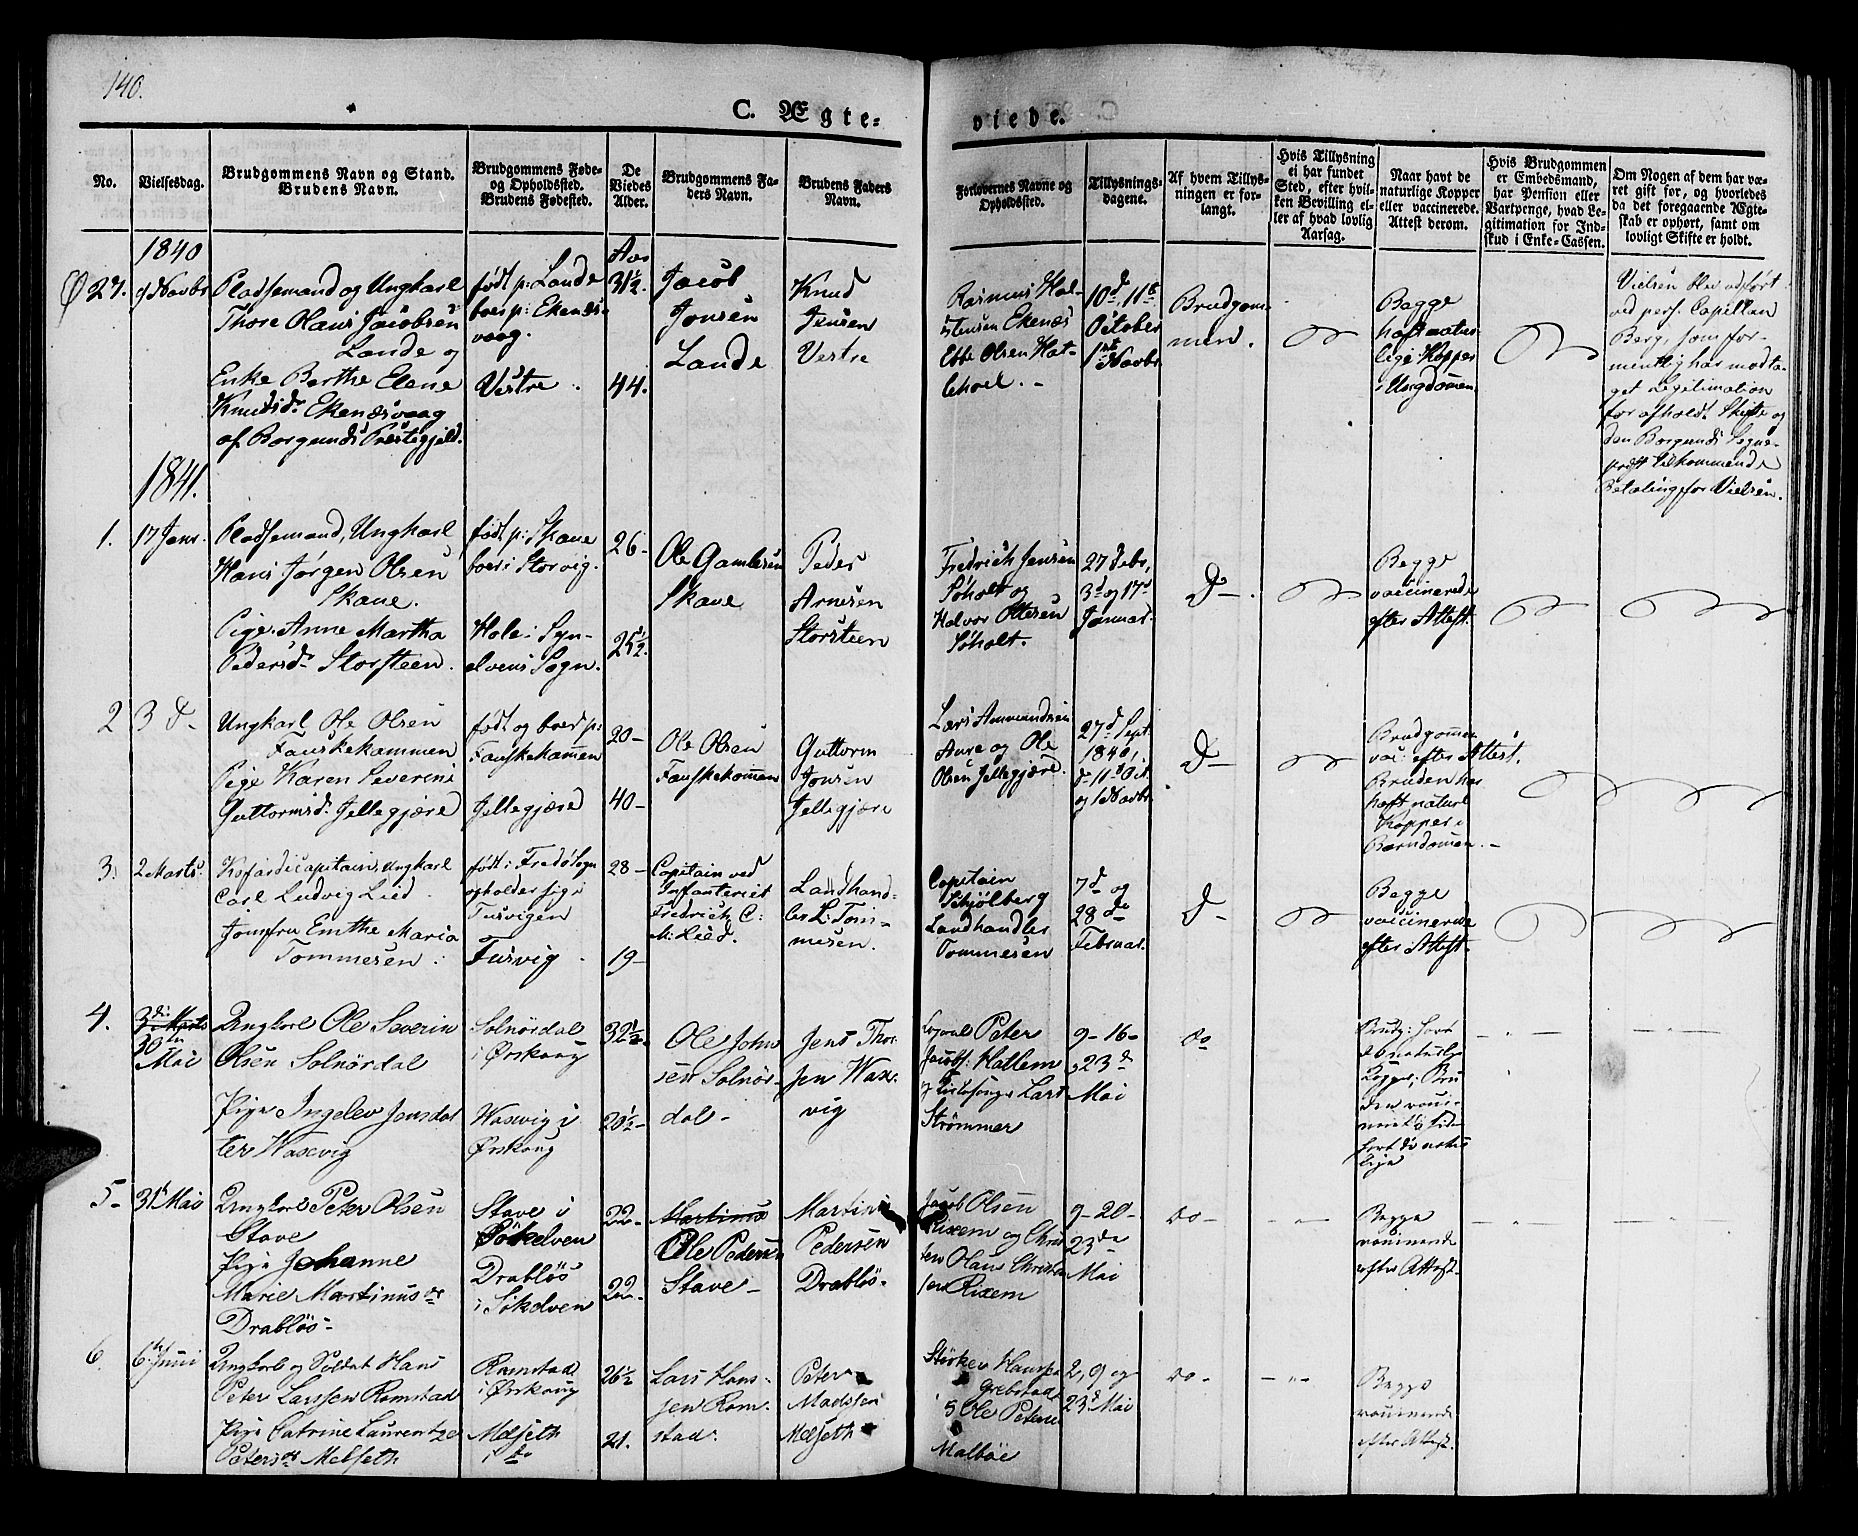 140.
C. Ægte-
viede.
No.
Vielsesdag.
Brudgommens Navn og Stand.
Brudens Navn.
Brudgommens Føde-
og Opholdssted.
Brudens Fødested.
De
Viedes
Alder.
Brudgommens Fa-
ders Navn.
Brudens Faders
Navn.
Forlovernes Navne og
Opholdssted.
Tillysnings-
dagene.
Af hvem Tillys-
ningen er for-
langt.
Hvis Tillysning
ei har fundet
Sted, efter hvil-
ken Bevilling el-
ler af hvad lovlig
Aarsag.
Naar havt de
naturlige Kopper
eller vaccinerede.
Attest derom.
Hvis Brudgommen
er Embedsmand,
har Pension eller
Vartpenge, hvad Le-
gitimation for Ind-
skud i Enke-Cassen.
Om Nogen af dem har væ-
ret gift før, og hvorledes
da det foregaaende Ægte-
skab er ophørt, samt om
lovligt Skifte er holdt.
1840
27.
9 d Novbr
Pladsemand og Ungkarl
Thore Olaus Jacobsen
Lande og
Enke Berthe Elene
Knudsdr Ekenæsvaag
af Borgunds Præstegjeld.
født p: Lande
boer p: Ekenæs-
vaag.
Vestre
Aar
31½.
44.
Jacob
Jonsen
Lande
Knud
Jensen
Vestre
Rasmus Hol-
stensen Ekenæs
Ebbe Olsen Hat-
lehoel. -
10 d, 11te
October
1ste Novbr.
Brudgom-
men.
Begge
haft natur-
lige Kopper
i Ungdomen
Vielsen blev udført
ved pers. Capellan
Berg, som for-
mentlig har modta-
get Legitimation
for afholdt Skifte og
den Borgunds Sogne-
præst tilkommende
Betaling for Vielsen.
1841.
1.
17 Janr.
Pladsemand, Ungkarl
Hans Jørgen Olsen
Skaue.
Pige Anne Martha
Pedersdr Storsteen.
født p: Skaue
boer i Storvig.
Hole i Syn-
elvens Sogn.
26-
25½.
Ole Gamlesen
Skaue
Peder
Arnesen
Storsteen
Fredrich Jensen
Søholt og
Halvor Ottesen
Søholt.
27 Debr,
3d og 17d
Januar.
Do -
Begge
vaccinerede
efter Attest.
2
3 d-
Ungkarl Ole Olsen
Fauskekammen
Pige Karen Severine
Guttormsd. Jellegjære
født og boed p:
Fauskekammen
Jellegjære
20-
40-
Ole Olsen
Fauskekamman
Guttorm
Jonsen
Jellegjære
Lars Ammundsen
Aure og Ole
Olsen Jellegjære.
27 d Sept.
1840,
d. 11 d Oct.
og 1 Novbr.
Do -
Brudgommen
vac: efter Attest.
Bruden har
haft naturl
Kopper i
Barndomen. -
3.
2 Marts.
Kofardicapitain, Ungkarl
Carl Ludvig Lied
Jomfru Emthe Maria
Tommesen
født i Fredø Sogn
opholder sig i
Tusvigen
Tusvig
28-
19-
Capitain ved
Infanteriet
Fredrich C:
M: Lied.
Landhand-
ler L: Tom-
mesen.
Capitain
Schjølberg
Landhandler
Tommesen
7d og
28 de
Februar.
Do -
Begge
vaccinerede
efter Attest
4.
3 die Marts
30 te
Mai
Ungkarl Ole Severin
Olsen Solnørdal
Pige Ingelev Jensdat
ter Waxvig
Solnørdal
i Ørskoug
Waxvig i
Ørskoug
32½.
20½-
Ole John
sen Solnør-
dal-
Jens Thor
sen Wax-
vig
Peter
Jacobs: Hallem
Lars
Strømmer
9-16-
23 de
Mai
do
Brudg: havt
naturlige
Kopper; Bru
den
5-
31 Mai
Ungkarl Peter Olsen
Stave
Pige Johanne
Marie Martinus dr
Drabløs-
Stave i
Søkelven
Drabløs
i Søkelven
22-
22-
Martinus
Ole Pedersen
Stave-
Martin
Pedersen
Drabløs-
Jacob Olsen
Rixem og Chris
ten Olaus Christen
sen Rixem
9-20-
23 de
Mai
do-
Begge
vaccinerede
efter Attest-
6.
6te Juni
Ungkarl og Soldat Hans
Peter Larssen Ramstad
Pige Catrine Laurentze
Peters dr Melseth
Ramstad
i Ørskoug
Melseth
i do
26½
21.
Lars Han-
sen Ram-
stad
Peter
Madssen
Melseth
Størker Hanssen
Grebstad
Ole Petersen
Malbøe
2, 9 og
23 Mai
do-
Begge
vaccinerede
efter Attest.